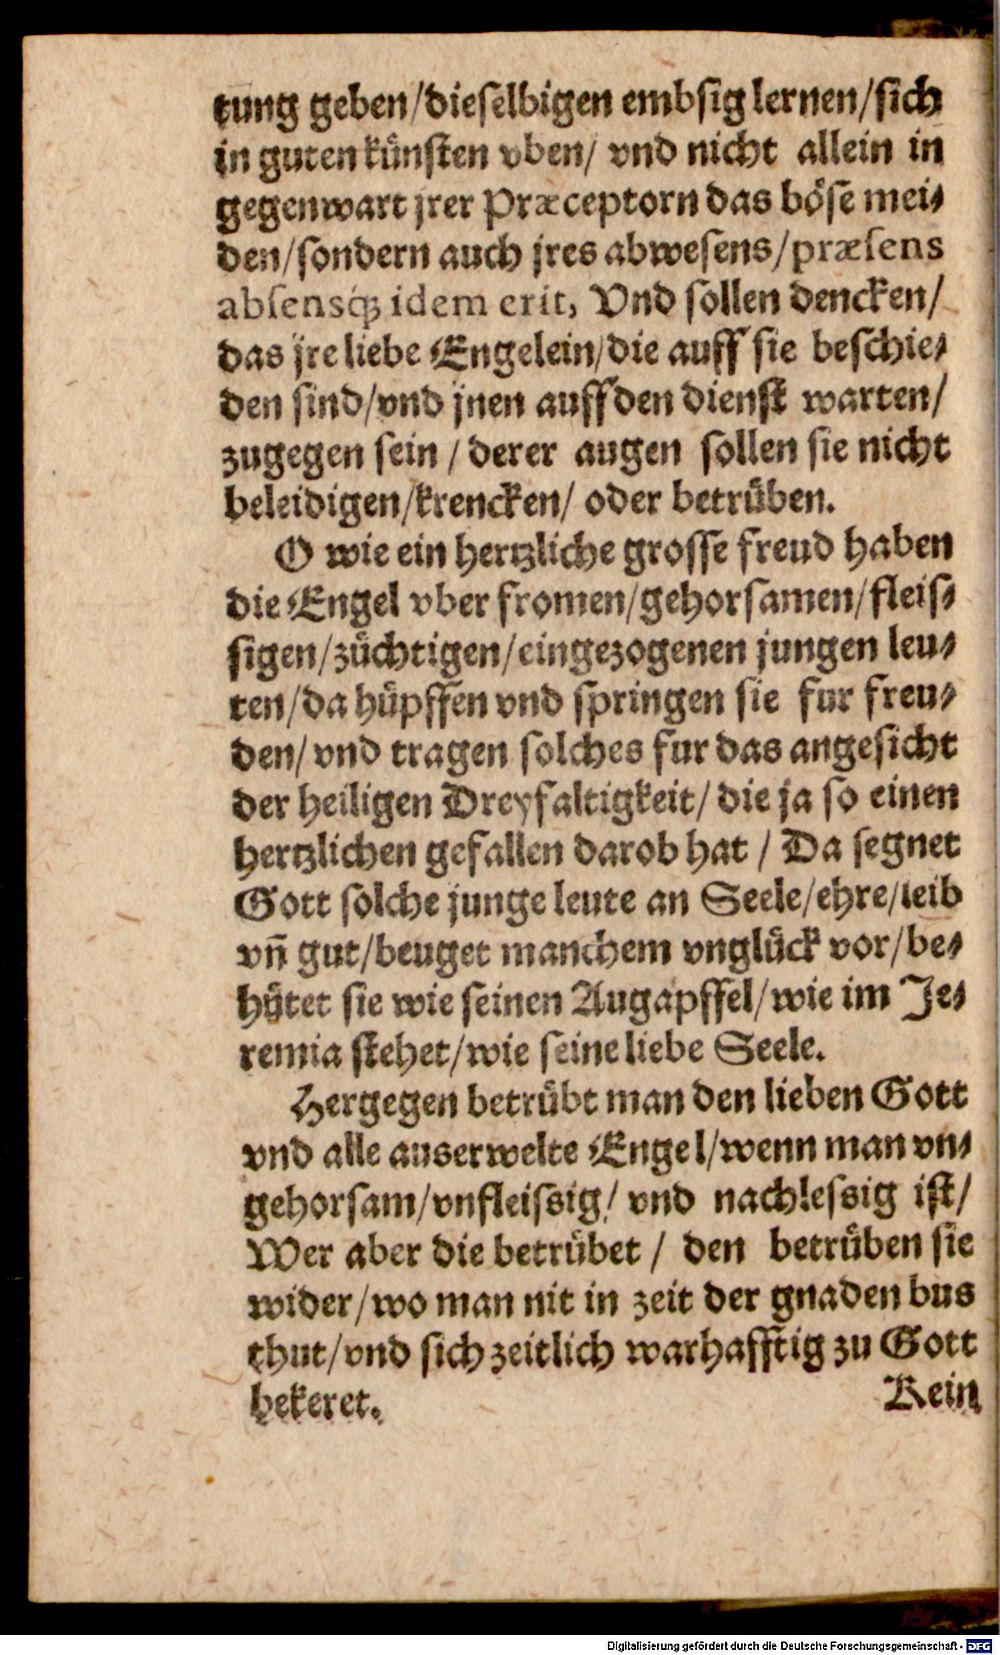 tung geben/dieselbigen embsig lernen/sich
in guten kuͤnsten vben/ vnd nicht allein in
gegenwart jrer Præceptorn das boͤse mei-
den/sondern auch jres abwesens/præsens
absensq́; idem erit, Vnd sollen dencken/
das jre liebe Engelein/die auff sie beschie-
den sind/vnd jnen auff den dienst warten/
zugegen sein / derer augen sollen sie nicht
beleidigen/krencken/ oder betruͤben.
O wie ein hertzliche grosse freud haben
die Engel vber fromen/gehorsamen/fleis-
sigen/zuͤchtigen/eingezogenen jungen leu-
ten/da huͤpffen vnd springen sie fur freu-
den/ vnd tragen solches fur das angesicht
der heiligen Dreyfaltigkeit/ die ja so einen
hertzlichen gefallen darob hat / Da segnet
Gott solche junge leute an Seele/ehre/leib
vñ gut/beuget manchem vngluͤck vor/be-
huͤtet sie wie seinen Augapffel/wie im Je-
remia stehet/wie seine liebe Seele.
Hergegen betruͤbt man den lieben Gott
vnd alle auserwelte Engel/wenn man vn-
gehorsam/vnfleissig/ vnd nachlessig ist/
Wer aber die betruͤbet / den betruͤben sie
wider/wo man nit in zeit der gnaden bus
thut/vnd sich zeitlich warhafftig zu Gott
bekeret. Kein
Digitalisierung gefördert durch die Deutsche Forschungsgemeinschaft - DFG